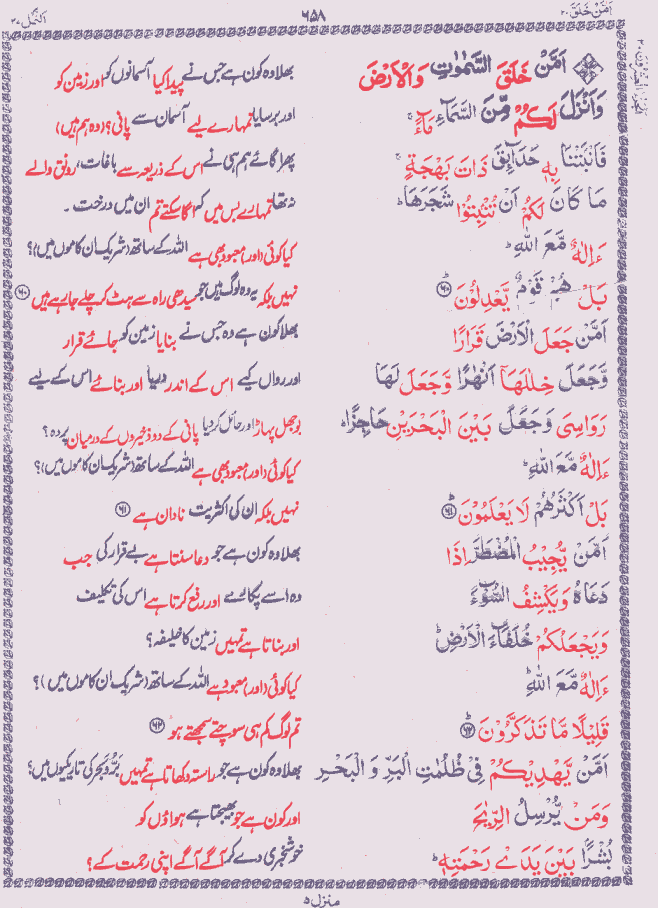 اَمَّنْ خَلَقَ ٢٠
٦٥٨
النمل ٢٧
اَمَّنْ خَلَقَ السَّمٰوٰتِ وَالْاَرْضَ
بھلا وہ کون ہے جس نے پیدا کیا آسمانوں کو اور زمین کو
وَاَنْزَلَ لَكُمْ مِّنَ السَّمَآءِ مَآءً ۚ
اور برسایا تمہارے لیے آسمان سے پانی؟ (وہ ہم ہیں)
فَاَنْۢبَتْنَا بِهٖ حَدَآئِقَ ذَاتَ بَهْجَةٍ ۚ
پھر اگائے ہم ہی نے اس کے ذریعہ سے باغات، رونق والے
مَا كَانَ لَكُمْ اَنْ تُنْۢبِتُوْا شَجَرَهَا ؕ
نہ تھا تمہارے بس میں کہ اگا سکتے تم ان میں درخت ۔
ءَاِلٰهٌ مَّعَ اللّٰهِ ؕ
کیا کوئی (اور) معبود بھی ہے اللہ کے ساتھ (شریک ان کاموں میں)؟
بَلْ هُمْ قَوْمٌ يَّعْدِلُوْنَ ؕ ﴿٦٠﴾
نہیں بلکہ یہ وہ لوگ ہیں جو سیدھی راہ سے ہٹ کر چلے جا رہے ہیں ﴿٦٠﴾
اَمَّنْ جَعَلَ الْاَرْضَ قَرَارًا
بھلا کون ہے وہ جس نے بنایا زمین کو جائے قرار
وَّجَعَلَ خِلٰلَهَاۤ اَنْهٰرًا وَّجَعَلَ لَهَا
اور رواں کیے اس کے اندر دریا اور بنائے اس کے لیے
رَوَاسِىَ وَجَعَلَ بَيْنَ الْبَحْرَيْنِ حَاجِزًا ؕ
بوجھل پہاڑ اور حائل کر دیا پانی کے دو ذخیروں کے درمیان پردہ؟
ءَاِلٰهٌ مَّعَ اللّٰهِ ؕ
کیا کوئی (اور) معبود بھی ہے اللہ کے ساتھ (شریک ان کاموں میں)؟
بَلْ اَكْثَرُهُمْ لَا يَعْلَمُوْنَ ؕ ﴿٦١﴾
نہیں بلکہ ان کی اکثریت نادان ہے ﴿٦١﴾
اَمَّنْ يُّجِيْبُ الْمُضْطَرَّ اِذَا
بھلا وہ کون ہے جو دعا سنتا ہے بے قرار کی جب
دَعَاهُ وَيَكْشِفُ السُّوْٓءَ
وہ اسے پکارے اور رفع کرتا ہے اس کی تکلیف
وَيَجْعَلُكُمْ خُلَفَآءَ الْاَرْضِ ؕ
اور بناتا ہے تمہیں زمین کا خلیفہ؟
ءَاِلٰهٌ مَّعَ اللّٰهِ ؕ
کیا کوئی (اور) معبود ہے اللہ کے ساتھ (شریک ان کاموں میں)؟
قَلِيْلًا مَّا تَذَكَّرُوْنَ ؕ ﴿٦٢﴾
تم لوگ کم ہی سوچتے سمجھتے ہو ﴿٦٢﴾
اَمَّنْ يَّهْدِيْكُمْ فِىْ ظُلُمٰتِ الْبَرِّ وَ الْبَحْرِ
بھلا وہ کون ہے جو راستہ دکھاتا ہے تمہیں بَرّ و بَحر کی تاریکیوں میں؟
وَمَنْ يُّرْسِلُ الرِّيٰحَ
اور کون ہے جو بھیجتا ہے ہواؤں کو
بُشْرًۢا بَيْنَ يَدَىْ رَحْمَتِهٖ ؕ
خوشخبری دے کر آگے آگے اپنی رحمت کے؟
منزل ۵